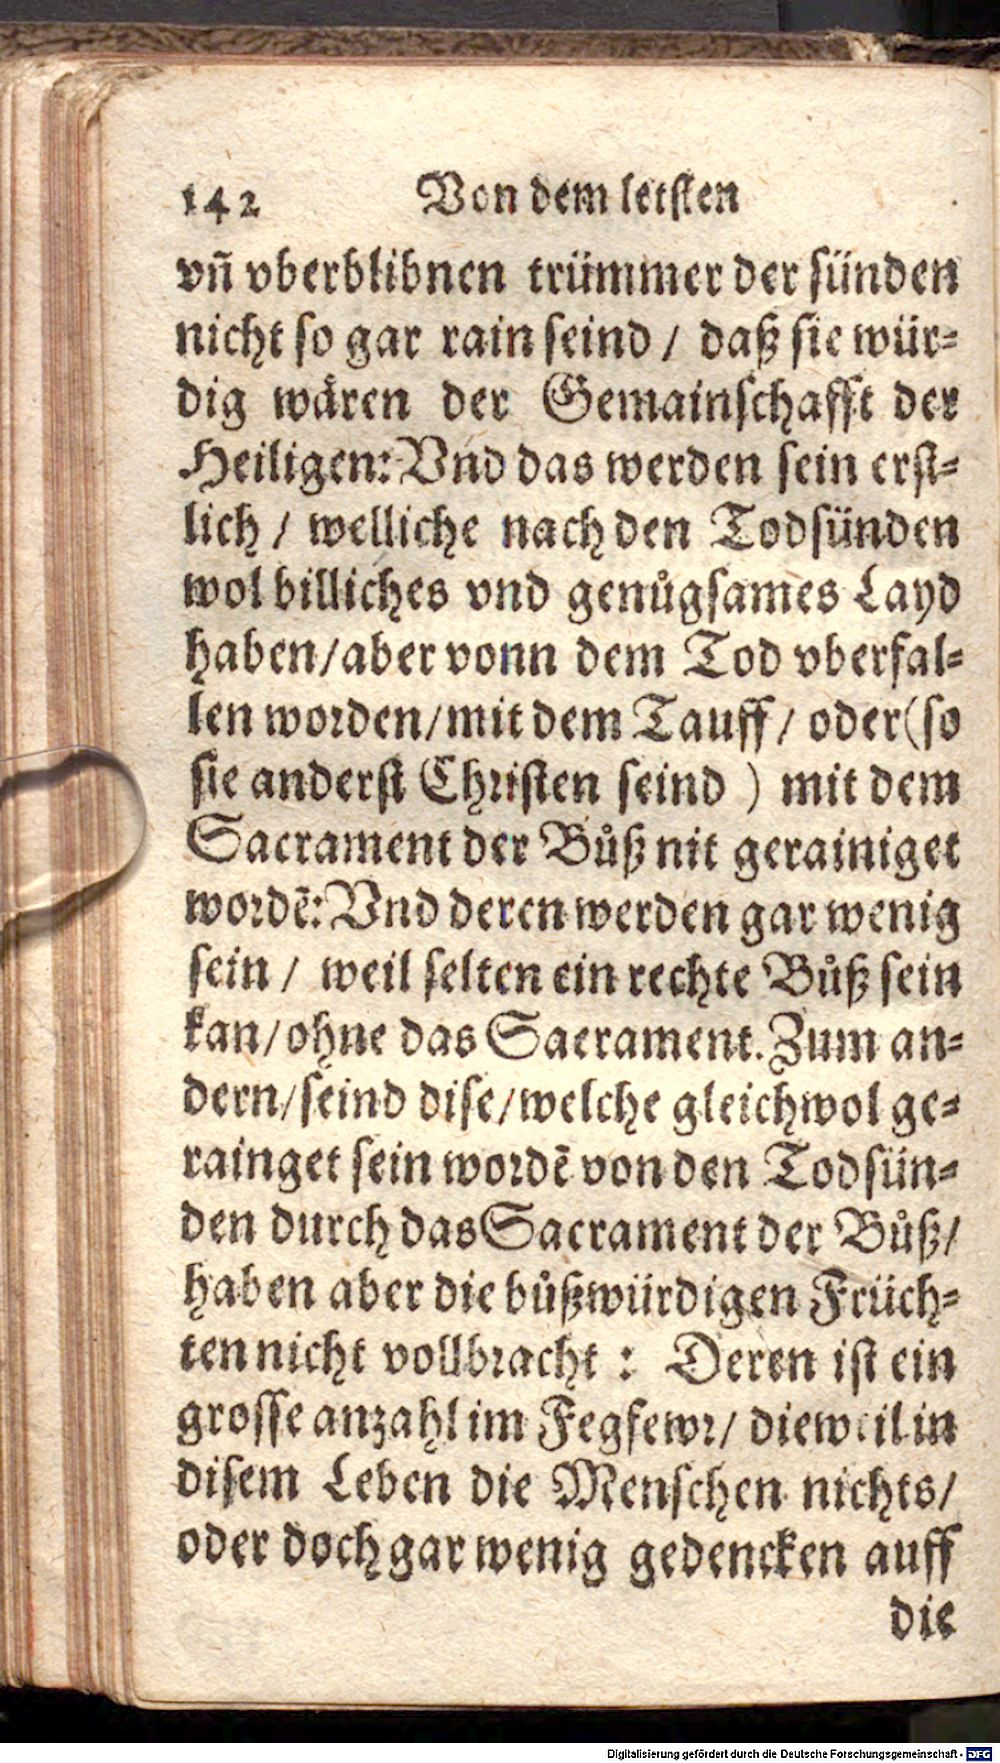 142 Von dem letsten
vñ vberblibnen trümmer der sünden
nicht so gar rain seind / daß sie wür-
dig wären der Gemainschafft der
Heiligen: Vnd das werden sein erst-
lich / welliche nach den Todsünden
wol billiches vnd genůgsames Layd
haben/aber vonn dem Tod vberfal-
len worden/mit dem Tauff/ oder(so
sie anderst Christen seind ) mit dem
Sacrament der Bůß nit gerainiget
wordẽ: Vnd deren werden gar wenig
sein / weil selten ein rechte Bůß sein
kan/ohne das Sacrament. Zum an-
dern/seind dise/welche gleichwol ge-
rainget sein wordẽ von den Todsün-
den durch das Sacrament der Bůß/
haben aber die bůßwürdigen Früch-
ten nicht vollbracht : Deren ist ein
grosse anzahl im Fegfewr/ dieweil in
disem Leben die Menschen nichts/
oder doch gar wenig gedencken auff
die
Digitalisierung gefördert durch die Deutsche Forschungsgemeinschaft - DFG